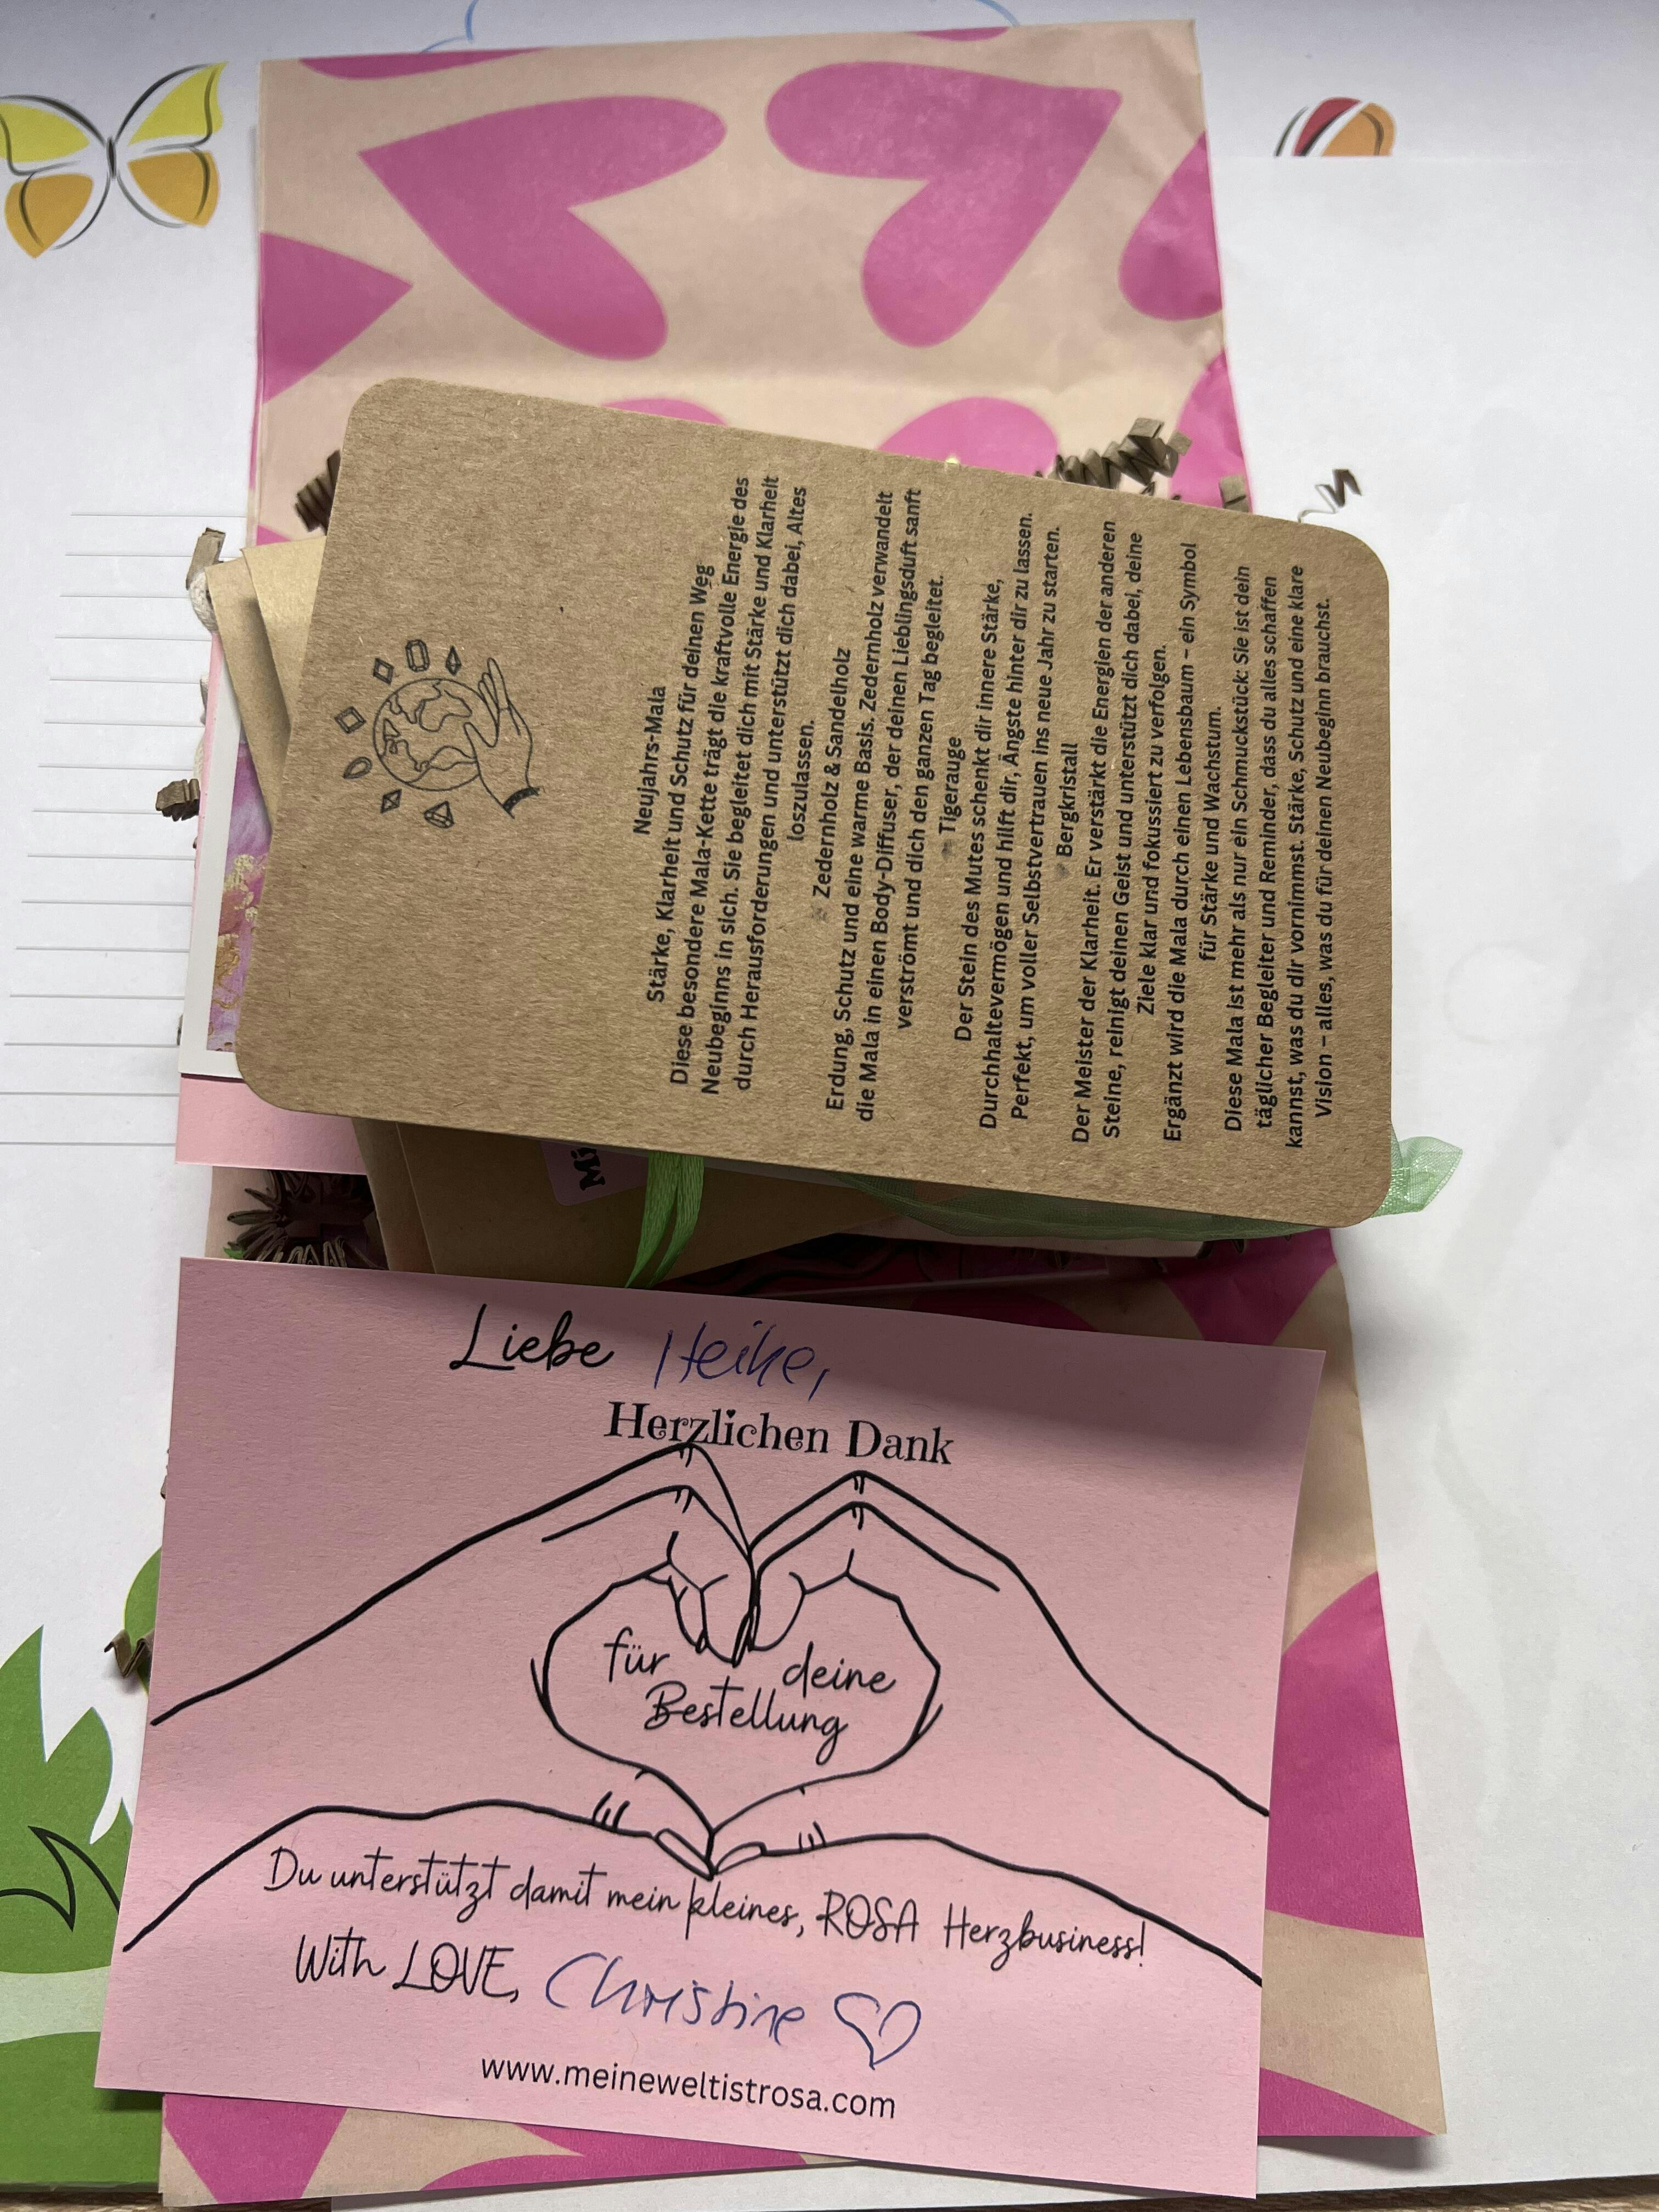 Neujahrs-Mala
Stärke, Klarheit und Schutz für deinen Weg
Diese besondere Mala-Kette trägt die kraftvolle Energie des
Neubeginns in sich. Sie begleitet dich mit Stärke und Klarheit
durch Herausforderungen und unterstützt dich dabei, Altes
loszulassen.
Zedernholz & Sandelholz
Erdung, Schutz und eine warme Basis. Zedernholz verwandelt
die Mala in einen Body-Diffuser, der deinen Lieblingsduft sanft
verströmt und dich den ganzen Tag begleitet.
Tigerauge
Der Stein des Mutes schenkt dir innere Stärke,
Durchhaltevermögen und hilft dir, Ängste hinter dir zu lassen.
Perfekt, um voller Selbstvertrauen ins neue Jahr zu starten.
Bergkristall
Der Meister der Klarheit. Er verstärkt die Energien der anderen
Steine, reinigt deinen Geist und unterstützt dich dabei, deine
Ziele klar und fokussiert zu verfolgen.
Ergänzt wird die Mala durch einen Lebensbaum – ein Symbol
für Stärke und Wachstum.
Diese Mala ist mehr als nur ein Schmuckstück: Sie ist dein
täglicher Begleiter und Reminder, dass du alles schaffen
kannst, was du dir vornimmst. Stärke, Schutz und eine klare
Vision – alles, was du für deinen Neubeginn brauchst.
Mi
Liebe Heike,
Herzlichen Dank
für deine
Bestellung
Du unterstützt damit mein kleines, ROSA Herzbusiness!
With LOVE, Christine
www.meineweltistrosa.com